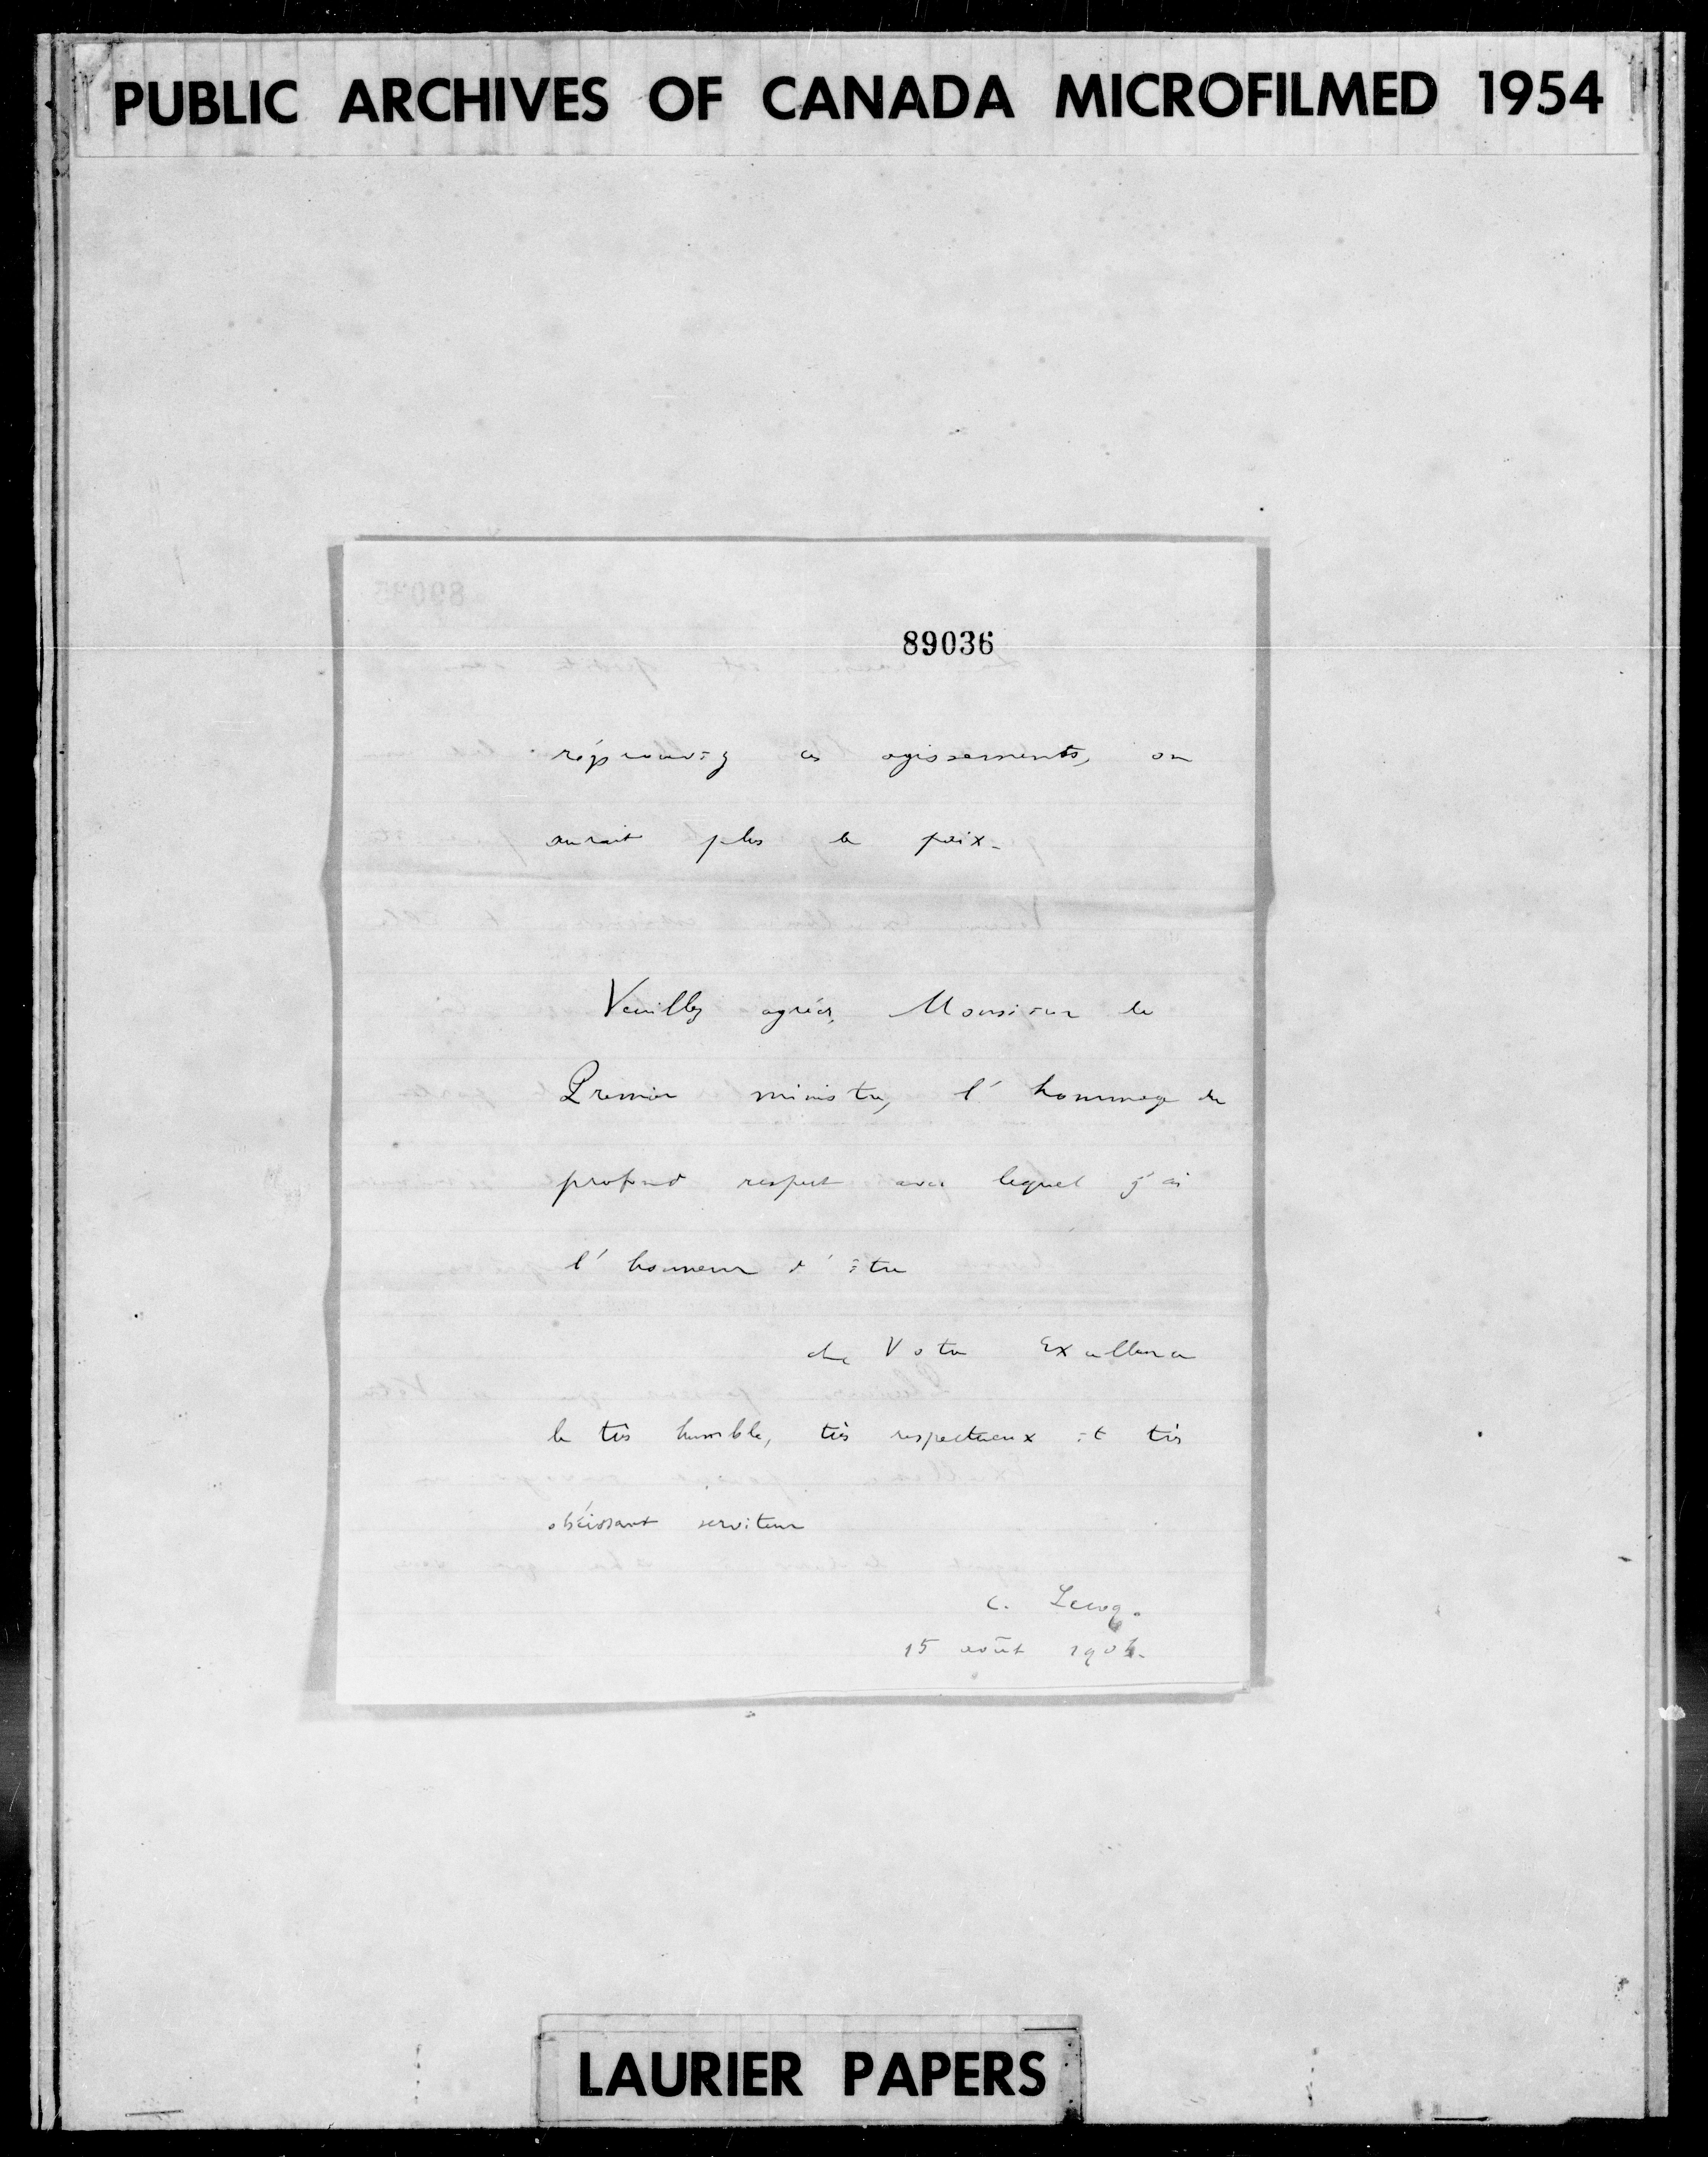 PUBLIC ARCHIVES OF CANADA MICROFILMED 1954
89036
réprouvez ces agissements, on
aurait plus de paix.
Veuillez agréer, Monsieur le
Premier ministre, l'hommage du
profond respect avec lequel j'ai
l'honneur d'être
de Votre Excellence
le très humble, très respectueux et très
obéissant serviteur
C. Lecoq.
15 août 190
LAURIER PAPERS